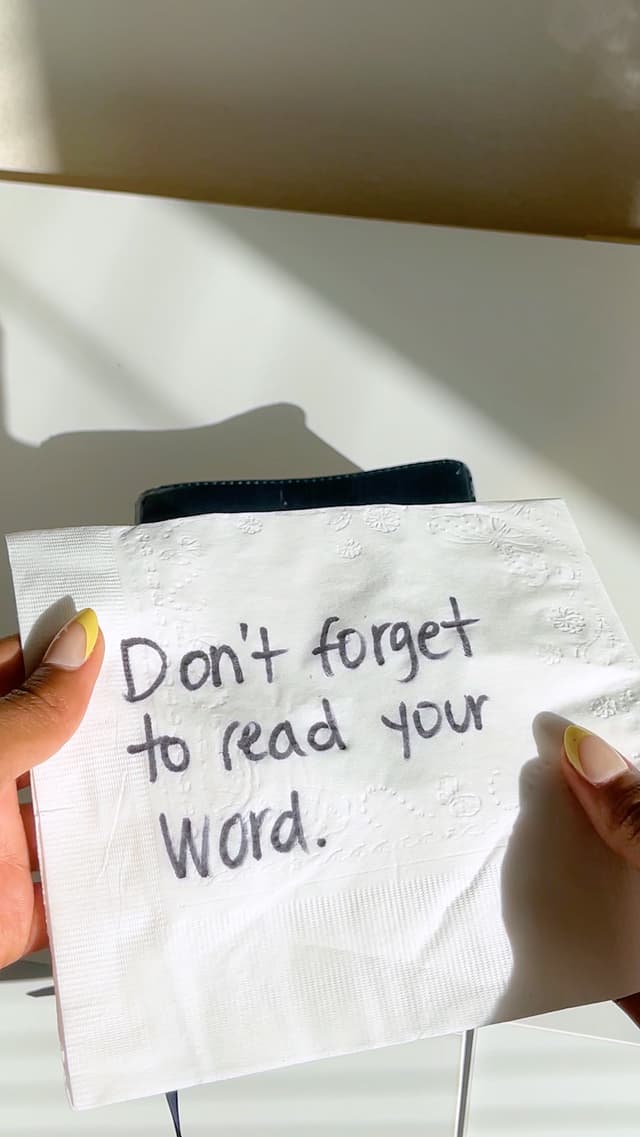 Don't forget
to read your
Word.